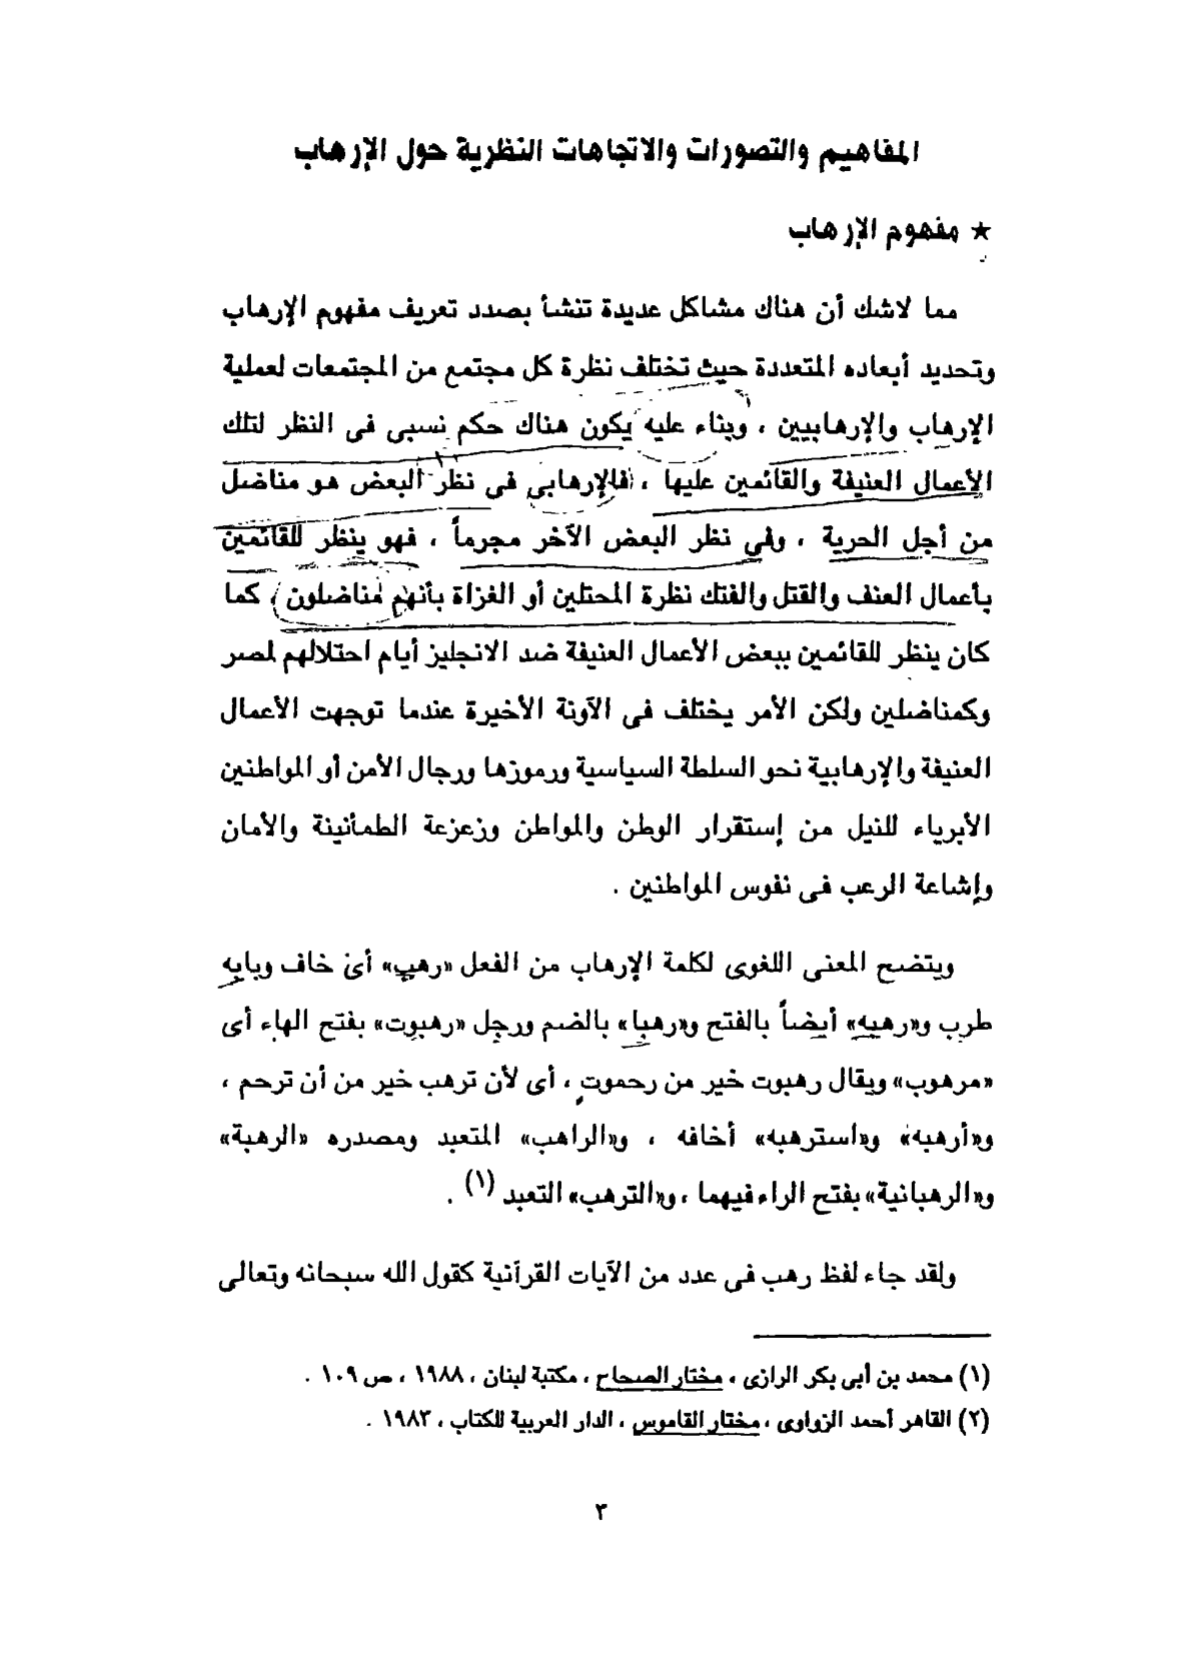 المفاهيم والتصورات والاتجاهات النظرية حول الإرهاب
★ مفهوم الإرهاب
مما لاشك أن هناك مشاكل عديدة تنشأ بصدد تعريف مفهوم الإرهاب
وتحديد أبعاده المتعددة حيث تختلف نظرة كل مجتمع من المجتمعات لعملية
الإرهاب والإرهابيين ، وبناء عليه يكون هناك حكم نسبى فى النظر لتلك
الأعمال العنيفة والقائمين عليها ، فالإرهابى فى نظر البعض هو مناضل
من أجل الحرية ، وفي نظر البعض الآخر مجرماً ، فهو ينظر للقائمين
بأعمال العنف والقتل والفتك نظرة المحتلين أو الغزاة بأنهم مناضلون ، كما
كان ينظر للقائمين ببعض الأعمال العنيفة ضد الانجليز أيام احتلالهم لمصر
وكمناضلين ولكن الأمر يختلف فى الآونة الأخيرة عندما توجهت الأعمال
العنيفة والإرهابية نحو السلطة السياسية ورموزها ورجال الأمن أو المواطنين
الأبرياء للنيل من إستقرار الوطن والمواطن وزعزعة الطمأنينة والأمان
وإشاعة الرعب فى نفوس المواطنين .
ويتضح المعنى اللغوى لكلمة الإرهاب من الفعل «رهب» أى خاف وبابه
طرب و«رهبه» أيضاً بالفتح و«رهبا» بالضم ورجل «رهبوت» بفتح الهاء أى
«مرهوب» ويقال رهبوت خير من رحموت ، أى لأن ترهب خير من أن ترحم ،
و«أرهبه» و«استرهبه» أخافه ، و«الراهب» المتعبد ومصدره «الرهبة»
و«الرهبانية» بفتح الراء فيهما ، و«الترهب» التعبد (١) .
ولقد جاء لفظ رهب فى عدد من الآيات القرآنية كقول الله سبحانه وتعالى
(١) محمد بن أبى بكر الرازى ، مختار الصحاح ، مكتبة لبنان ، ١٩٨٨ ، ص ١٠٩ .
(٢) القاهر أحمد الزواوى ، مختار القاموس ، الدار العربية للكتاب ، ١٩٨٣ .
٣